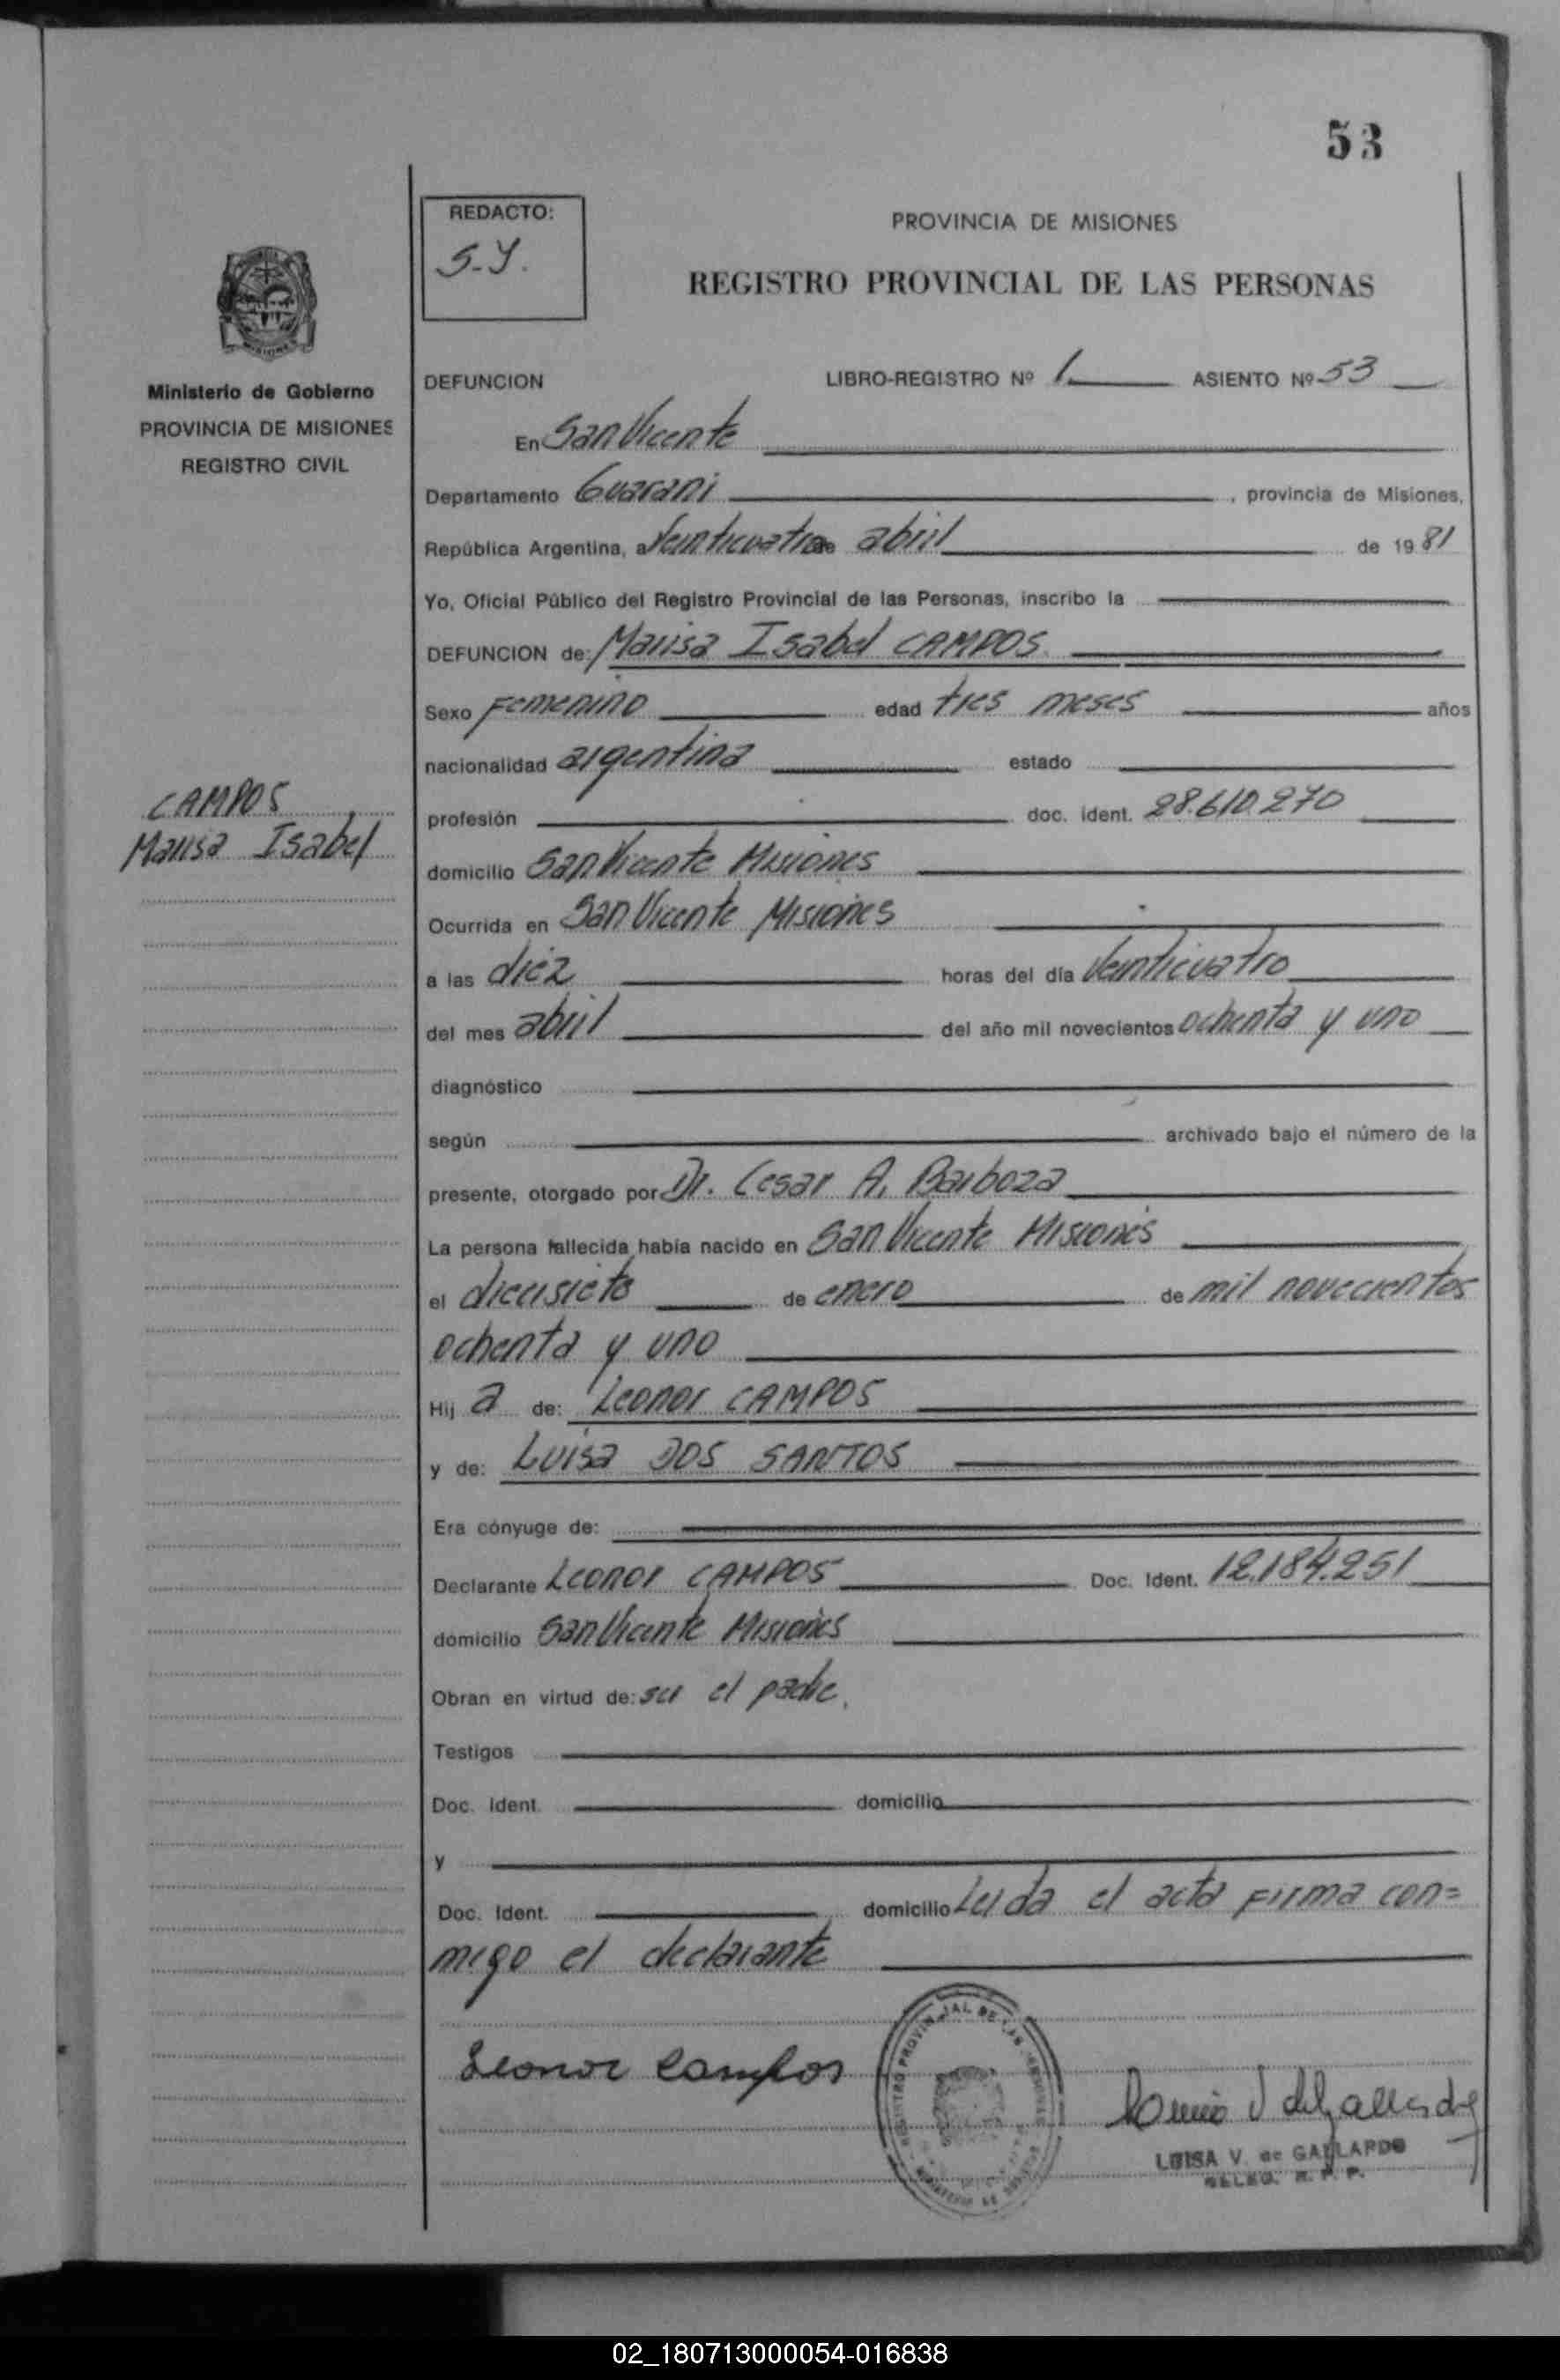 53
REDACTO:
S.Y.
PROVINCIA DE MISIONES
REGISTRO PROVINCIAL DE LAS PERSONAS
Ministerio de Gobierno
PROVINCIA DE MISIONES
REGISTRO CIVIL
DEFUNCION LIBRO-REGISTRO Nº 1 ASIENTO Nº 53
En San Vicente
Departamento Guarani, provincia de Misiones,
República Argentina, a Veinticuatro de abril de 1981
Yo, Oficial Público del Registro Provincial de las Personas, inscribo la
DEFUNCION de: Marisa Isabel CAMPOS.
Sexo Femenino edad tres meses años
nacionalidad argentina estado
CAMPOS
Marisa Isabel
profesión doc. ident. 28.610.270
domicilio San Vicente Misiones
Ocurrida en San Vicente Misiones
a las diez horas del día Veinticuatro
del mes abril del año mil novecientos ochenta y uno
diagnóstico
según archivado bajo el número de la
presente, otorgado por Dr. Cesar A. Barboza
La persona fallecida había nacido en San Vicente Misiones
el diecisiete de enero de mil novecientos
ochenta y uno
Hij a de: Leonor CAMPOS
y de: Luisa DOS SANTOS
Era cónyuge de:
Declarante Leonor CAMPOS Doc. Ident. 12.184.251
domicilio San Vicente Misiones
Obran en virtud de: ser el padre.
Testigos
Doc. Ident. domicilio
y
Doc. Ident. domicilio Leida el acta firma con=
migo el declarante
Leonor Campos
REGISTRO PROVINCIAL DE LAS
LUISA V. de GALLARDO
DELEG. R. P. P.
02_180713000054-016838